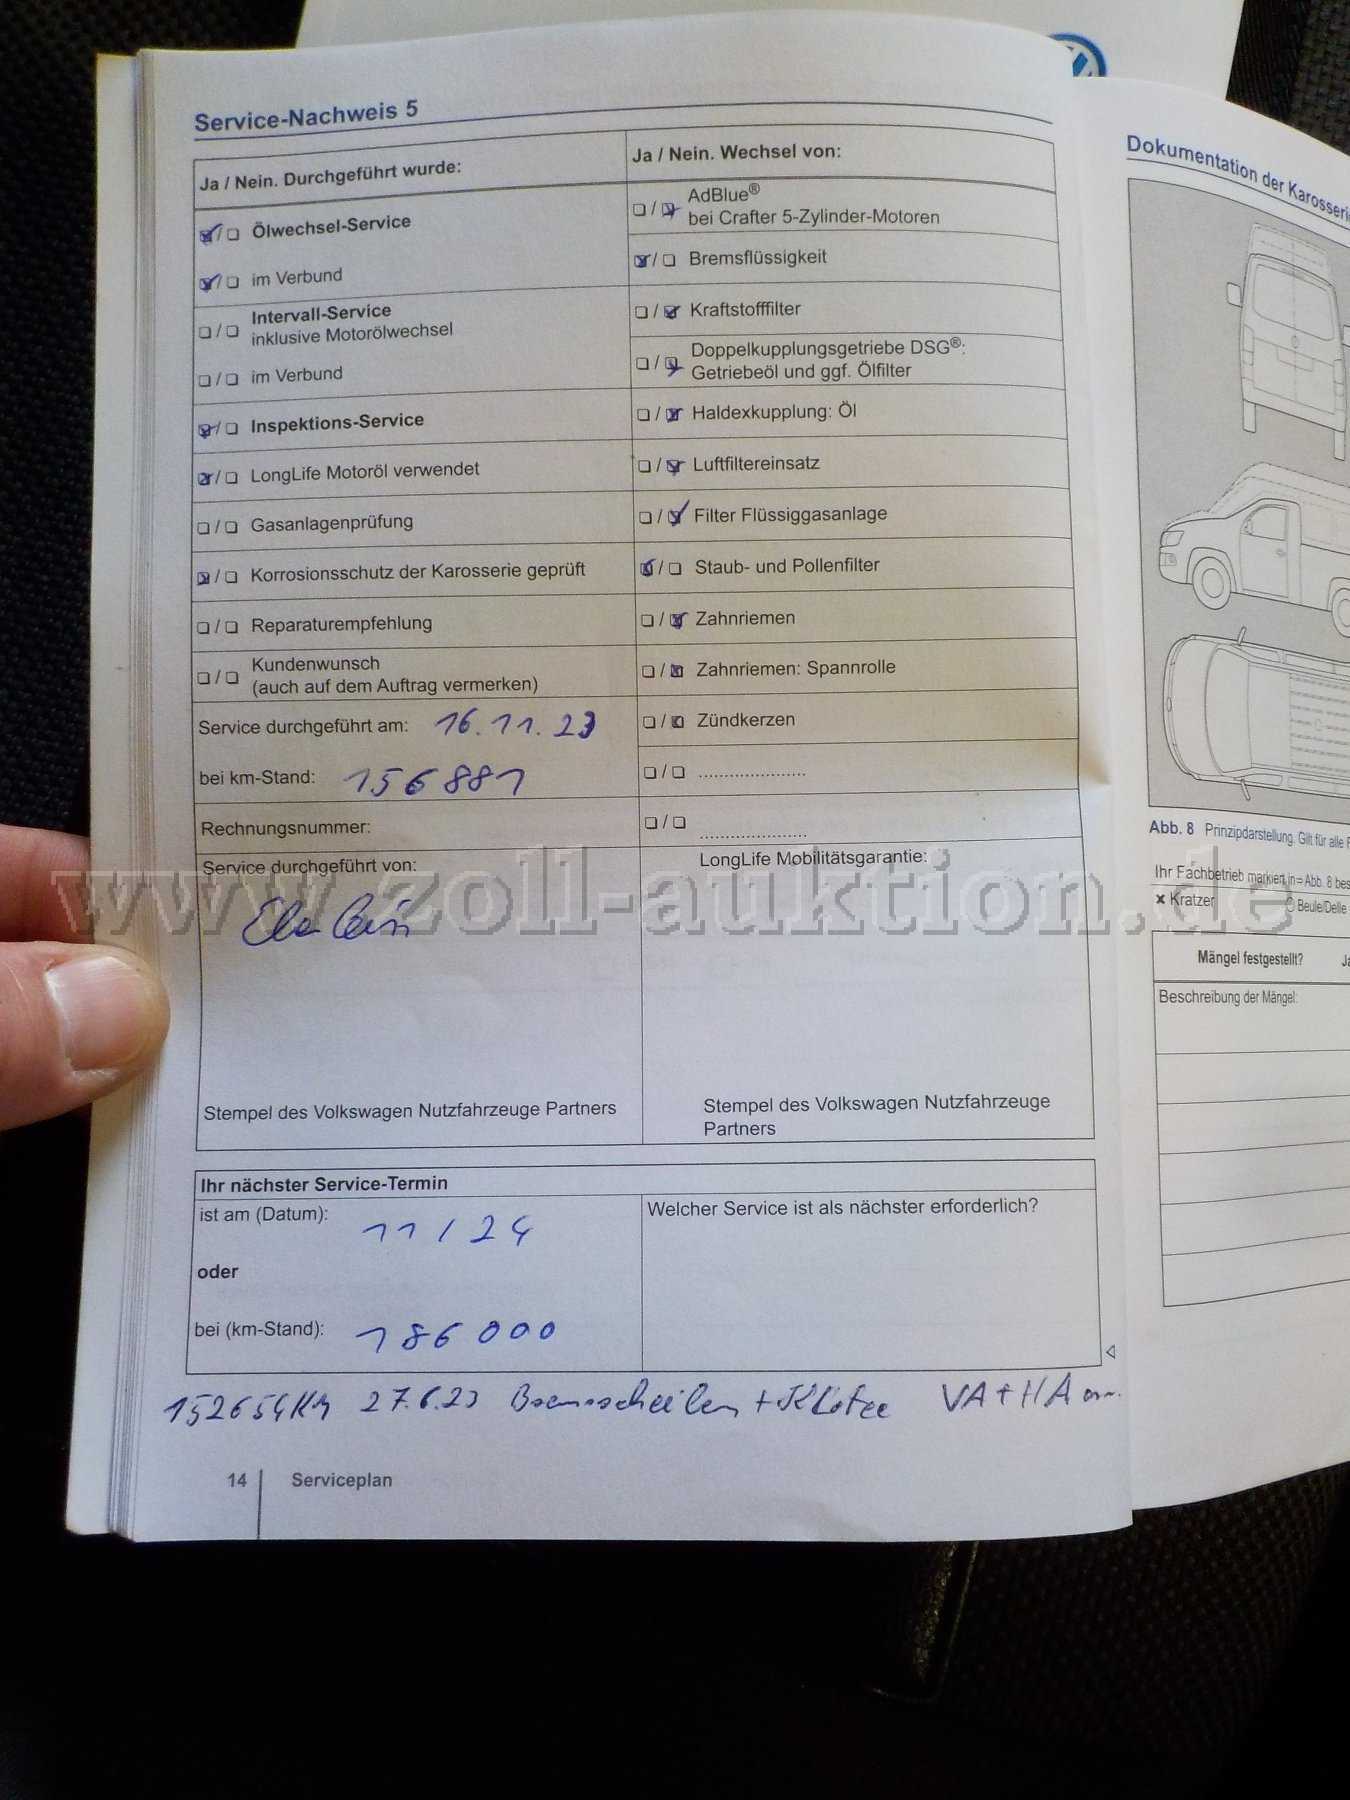 Service-Nachweis 5
Ja / Nein. Durchgeführt wurde:
Ölwechsel-Service
im Verbund
Intervall-Service
inklusive Motorölwechsel
im Verbund
Inspektions-Service
LongLife Motoröl verwendet
Gasanlagenprüfung
Korrosionsschutz der Karosserie geprüft
Reparaturempfehlung
Kundenwunsch
(auch auf dem Auftrag vermerken)
Service durchgeführt am: 16.11.23
bei km-Stand: 156881
Rechnungsnummer:
Service durchgeführt von:
Stempel des Volkswagen Nutzfahrzeuge Partners
Ja / Nein. Wechsel von:
AdBlue®
bei Crafter 5-Zylinder-Motoren
Bremsflüssigkeit
Kraftstofffilter
Doppelkupplungsgetriebe DSG®:
Getriebeöl und ggf. Ölfilter
Haldexkupplung: Öl
Luftfiltereinsatz
Filter Flüssiggasanlage
Staub- und Pollenfilter
Zahnriemen
Zahnriemen: Spannrolle
Zündkerzen
LongLife Mobilitätsgarantie:
Stempel des Volkswagen Nutzfahrzeuge
Partners
Ihr nächster Service-Termin
ist am (Datum): 11/24
oder
bei (km-Stand): 186000
Welcher Service ist als nächster erforderlich?
152654 KM 27.6.23 Bremsscheiben + Klötze VA + HA ern.
14 Serviceplan
Dokumentation der Karosserie
Abb. 8 Prinzipdarstellung. Gilt für alle
Ihr Fachbetrieb markiert in Abb. 8
Kratzer
Beule/Delle
Mängel festgestellt?
Beschreibung der Mängel:
www.zoll-auktion.de